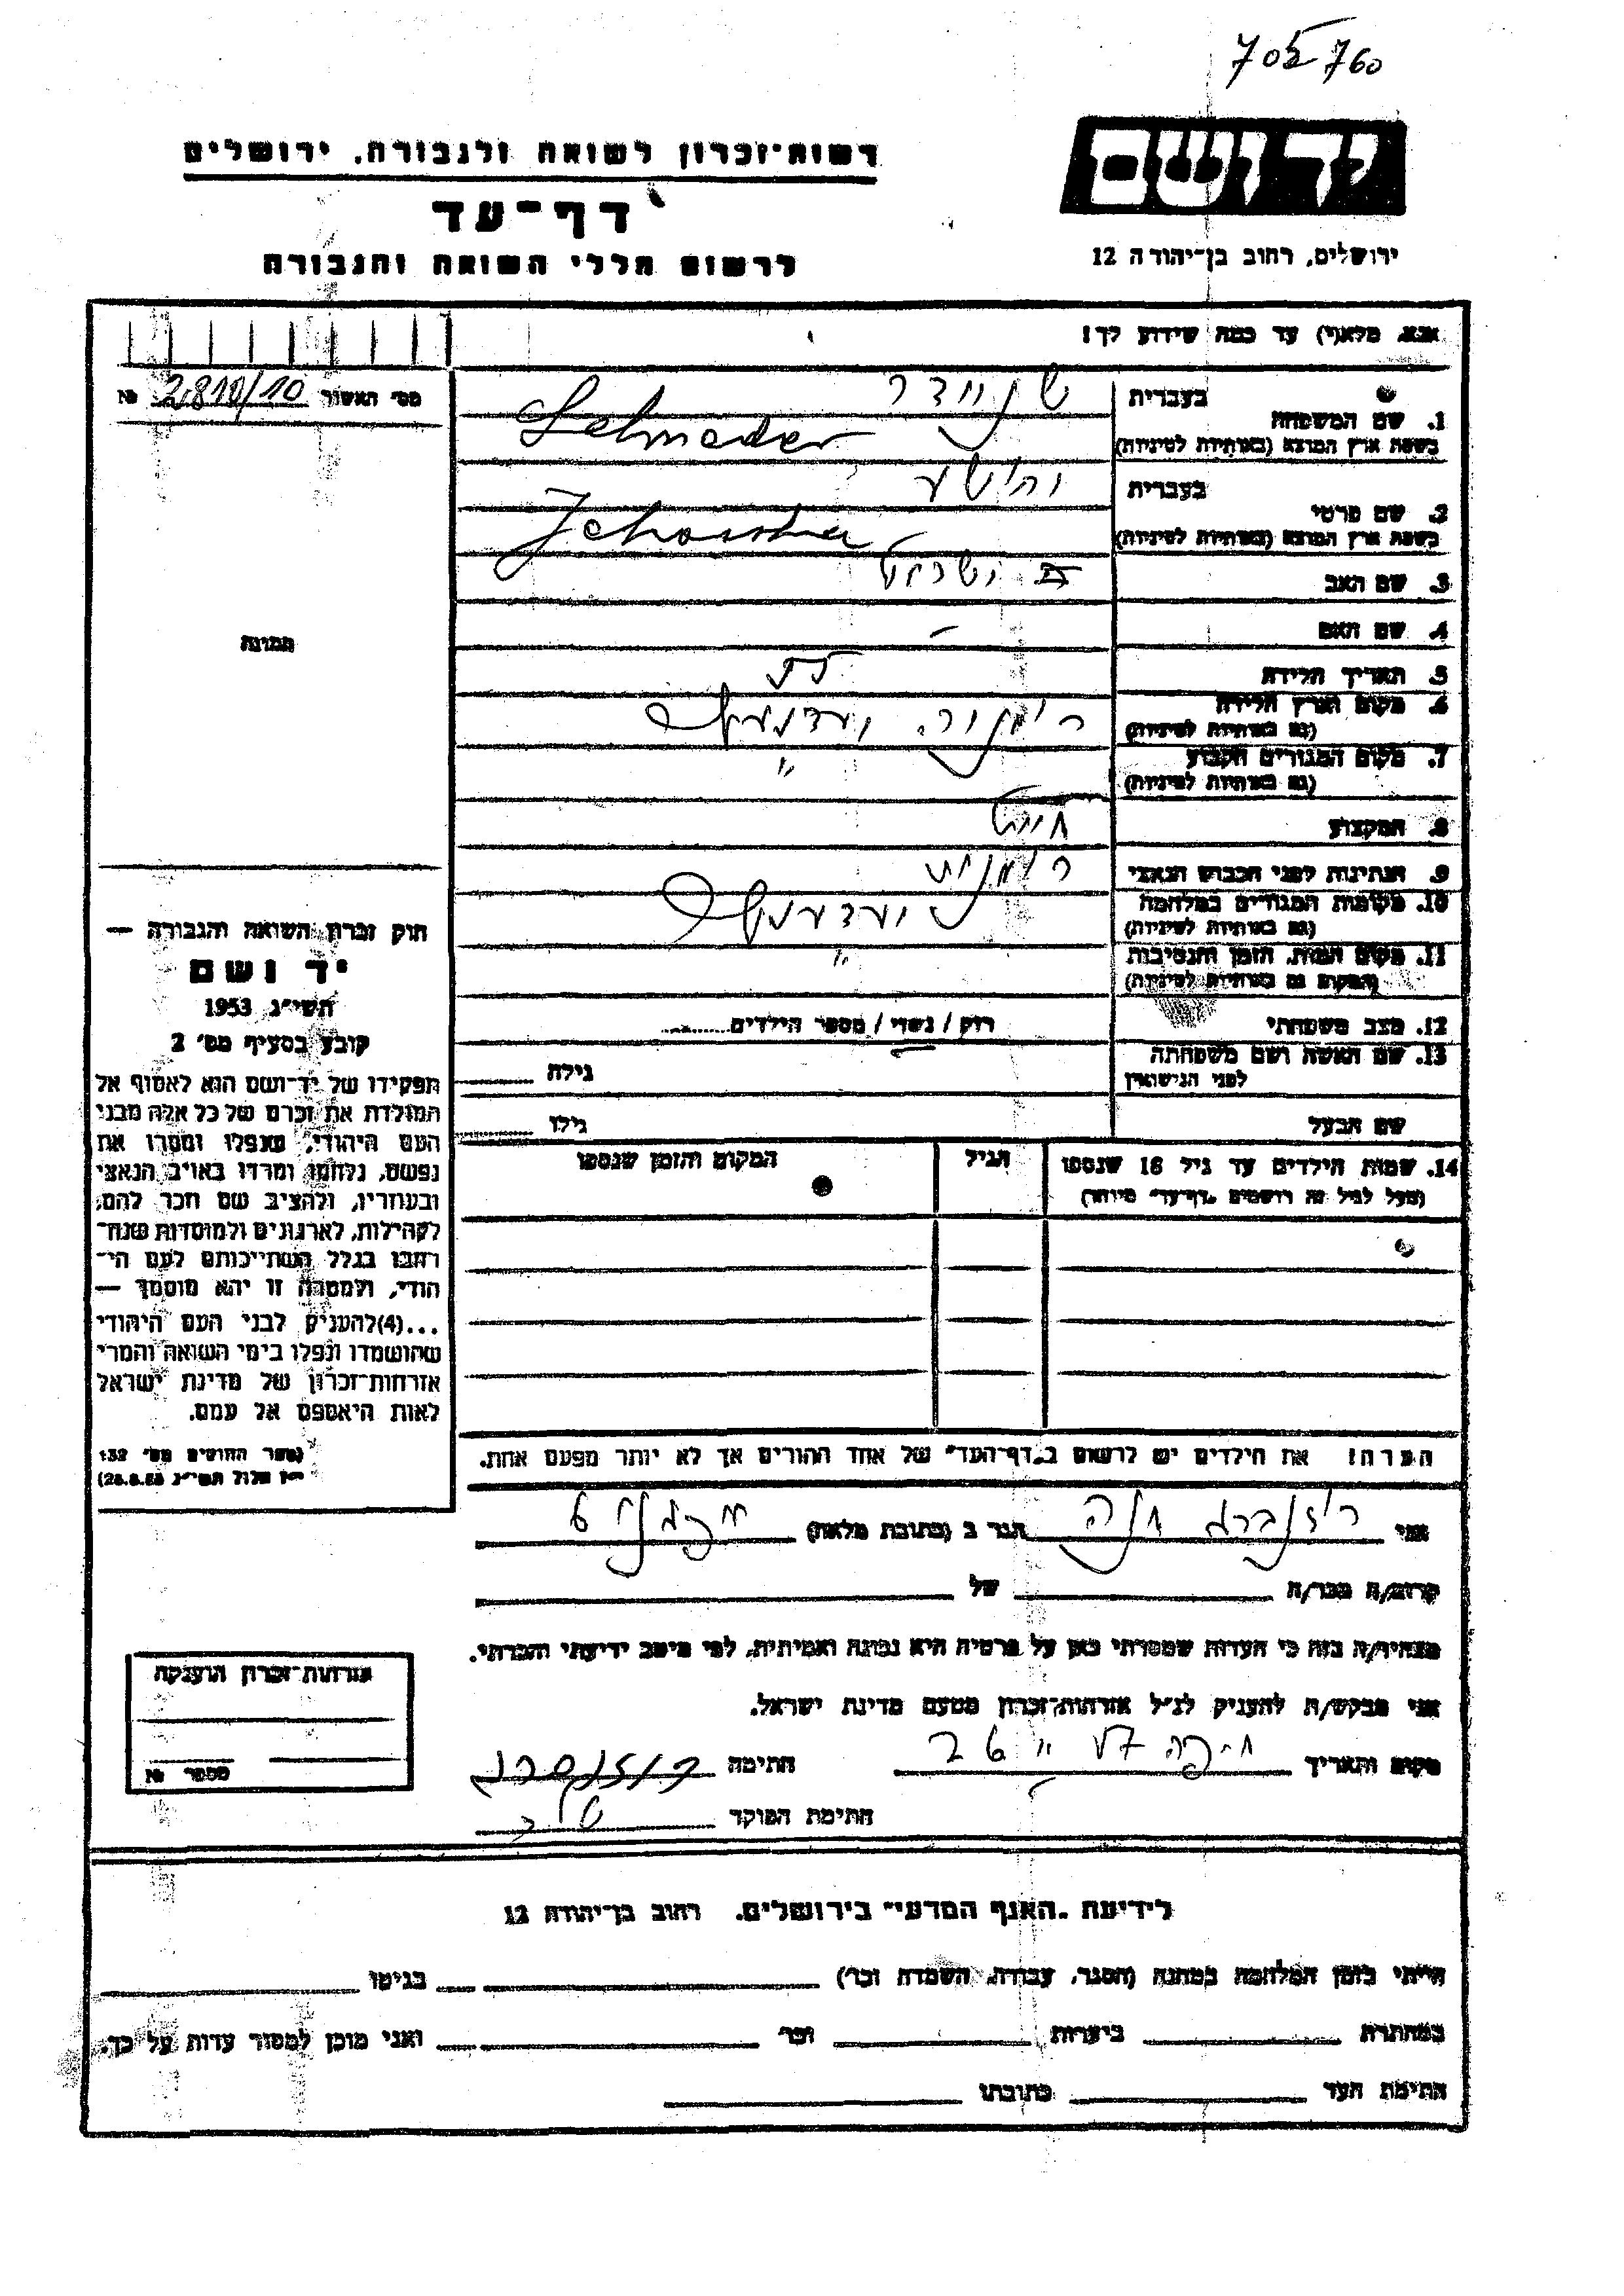 705760
יד ושם
רשות-זכרון לשואה ולגבורה, ירושלים
דף-עד
ירושלים, רחוב בן-יהודה 12
לרשום חללי השואה והגבורה
אנא, מלא(י) עד כמה שידוע לך!
מס' האשור 2810/10 №
בעברית שניידר
1. שם המשפחה
בשפת ארץ המוצא (באותיות לטיניות) Schneider
בעברית יהושע
2. שם פרטי
בשפת ארץ המוצא (באותיות לטיניות) Jehoshua
3. שם האב ישראל
4. שם האם –
תמונה
5. תאריך הלידה
6. מקום וארץ הלידה רומניה
(גם באותיות לטיניות)
7. מקום המגורים הקבוע "
(גם באותיות לטיניות)
8. המקצוע חייט
9. הנתינות לפני הכבוש הנאצי רומנית
10. מקומות המגורים במלחמה
(גם באותיות לטיניות)
11. מקום המות, הזמן והנסיבות "
(המקום גם באותיות לטיניות)
12. מצב משפחתי רווק / נשוי / מספר הילדים
13. שם האשה ושם משפחתה גילה
לפני הנישואין
שם הבעל גילו
14. שמות הילדים עד גיל 18 שנספו הגיל המקום והזמן שנספו
(מעל לגיל זה רושמים "דף-עד" מיוחד)
חוק זכרון השואה והגבורה —
יד ושם
תשי"ג 1953
קובע בסעיף מס' 2
תפקידו של יד-ושם הוא לאסוף אל
המולדת את זכרם של כל אלה מבני
העם היהודי, שנפלו ומסרו את
נפשם, נלחמו ומרדו באויב הנאצי
ובעוזריו, ולהציב שם וזכר להם,
לקהילות, לארגונים ולמוסדות שנח-
רבו בגלל השתייכותם לעם הי-
הודי, ולמטרה זו יהא מוסמך —
...(4)להעניק לבני העם היהודי
שהושמדו ונפלו בימי השואה והמרי
אזרחות-זכרון של מדינת ישראל
לאות היאספם אל עמם.
(ספר החוקים מס' 132
י"ז אלול תשי"ג 28.8.53)
הערה! את הילדים יש לרשום ב"דף-העד" של אחד ההורים אך לא יותר מפעם אחת.
אני רוזנברג חנה הגר ב (כתובת מלאה)
קרוב/ה מכר/ה של
מצהיר/ה בזה כי העדות שמסרתי כאן על פרטיה היא נכונה ואמיתית, לפי מיטב ידיעתי והכרתי.
אני מבקש/ת להעניק לנ"ל אזרחות-זכרון מטעם מדינת ישראל.
מקום ותאריך חיפה חתימה
חתימת הפוקד
אזרחות-זכרון הוענקה
מספר №
לידיעת "האגף המדעי" בירושלים, רחוב בן-יהודה 12
הייתי בזמן המלחמה במחנה (הסגר, עבודה, השמדה וכו') בגיטו
במחתרת ביערות וכו' ואני מוכן למסור עדות על כך.
חתימת העד כתובתו